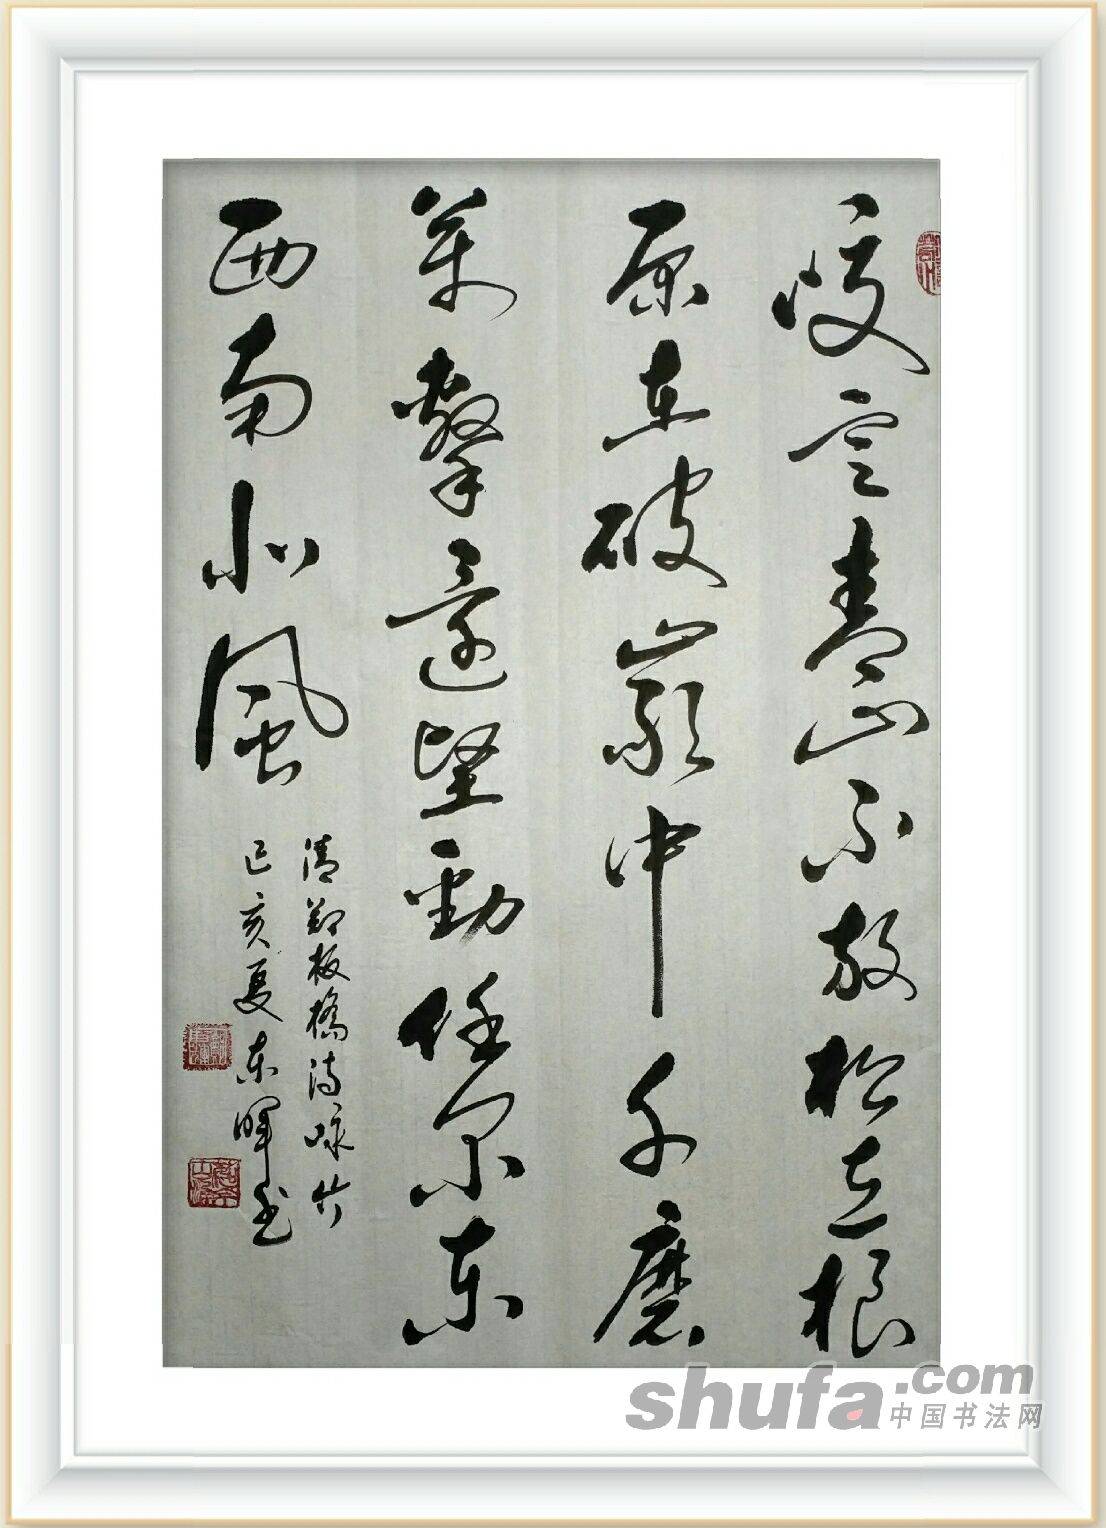 咬定青山不放松立根
原在破巖中千磨
萬擊還堅勁任尔东
西南北風
清郑板橋诗咏竹
己亥夏东暉书
shufa.com
中国书法网